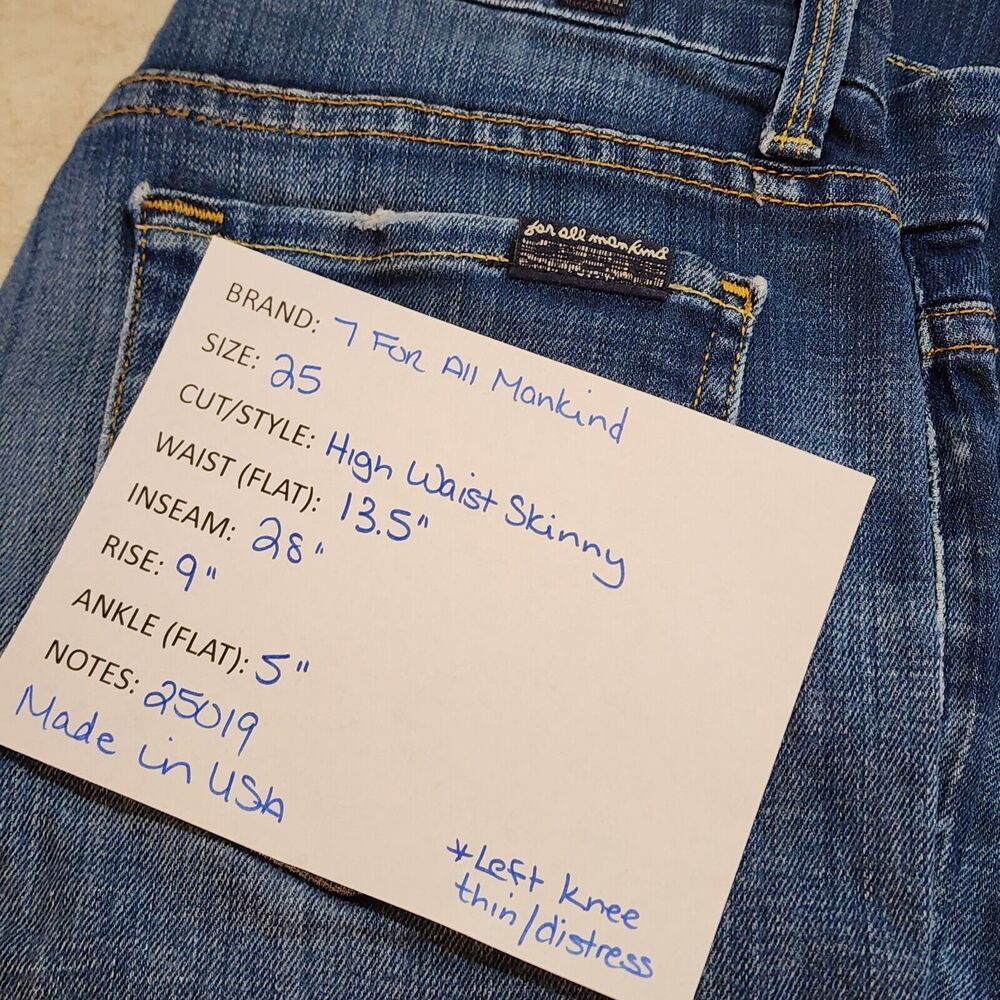 for all mankind
BRAND: 7 FOR All Mankind
SIZE: 25
CUT/STYLE: High Waist Skinny
WAIST (FLAT): 13.5"
INSEAM: 28"
RISE: 9"
ANKLE (FLAT): 5"
NOTES: 25019
Made in USA
*Left knee
thin/distress